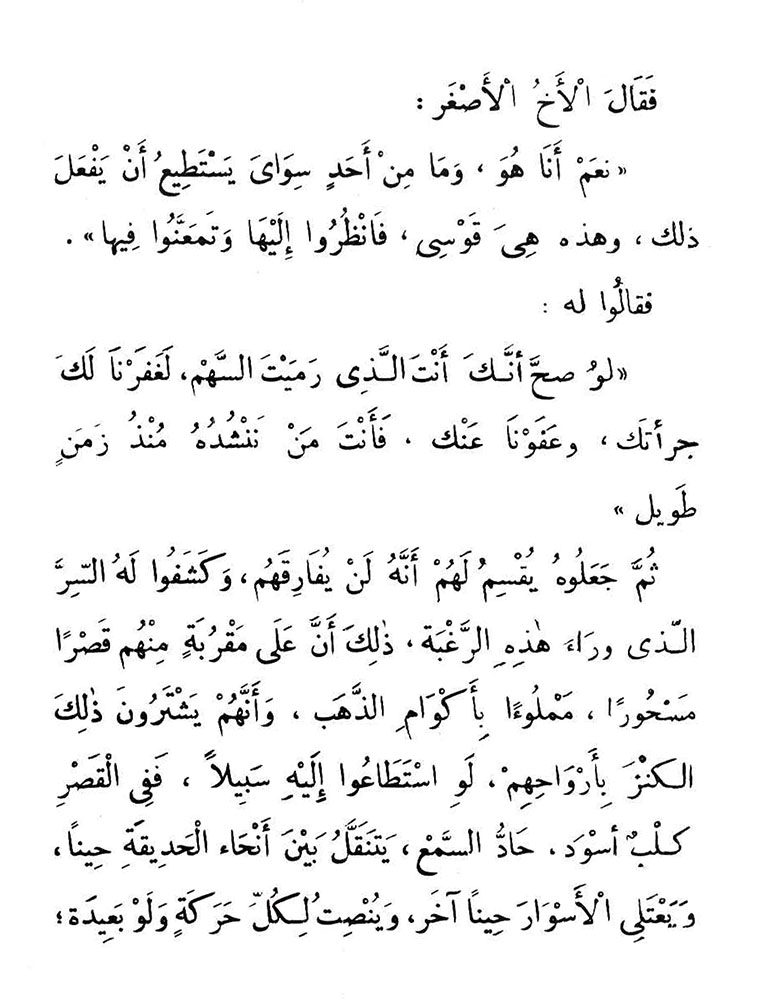 فَقَالَ الْأَخُ الْأَصْغَر :
« نعَمْ أَنَا هُوَ ، وَمَا مِنْ أَحَدٍ سِوَاىَ يَسْتَطِيعُ أَنْ يَفْعَلَ
ذلك ، وهذه هِىَ قَوْسِى ، فَانْظُرُوا إِلَيْهَا وَتَمَعَّنُوا فِيها » .
فقالُوا له :
« لوْ صحَّ أنَّكَ أَنْتَ الَّذِى رَمَيْتَ السَّهْمْ ، لَغَفَرْنَا لَكَ
جرأتَك ، وعَفَوْنَا عَنْك . فَأَنْتَ مَنْ نَنْشُدُهُ مُنْذُ زَمَنٍ
طَويل »
ثُمَّ جَعَلُوهُ يُقْسِمُ لَهُمْ أَنَّهُ لَنْ يُفَارِقَهُم ، وَكَشَفُوا لَهُ السِّرَّ
الَّذى ورَاءَ هٰذِهِ الرَّغْبَة . ذٰلِكَ أَنَّ عَلَى مَقْرُبَةٍ مِنْهُم قَصْرًا
مَسْحُورًا ، مَمْلُوءًا بِأَكْوَامِ الذَّهَب ، وَأَنَّهُمْ يَشْتَرُونَ ذٰلِكَ
الكنْزَ بِأَرْوَاحِهِمْ ، لَو اسْتَطَاعُوا إِلَيْهِ سَبِيلاً ، فَفِى الْقَصْرِ
كلْبٌ أسوْدَ . حَادُّ السَّمْعِ ، يَتَنَقَّلُ بَيْنَ أَنْحَاء الْحَدِيقَةِ حِيناً ،
وَيَعْتَلِى الْأَسْوَارَ حِيناً آخَر ، وَيُنْصِتُ لِكُلِّ حَرَكَةٍ وَلَوْ بَعِيدَة ؛